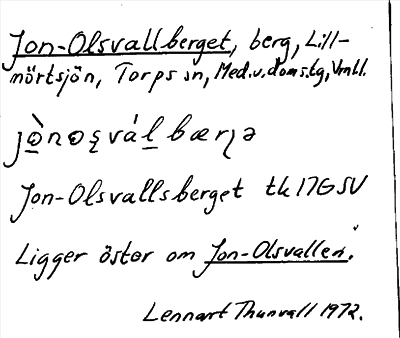 Jon-Olsvallberget, berg, Lill-
mörtsjön, Torps sn, Med.v.doms.tg, Vnll.
Jon-Olsvallsberget tk 17G SV
Ligger öster om Jon-Olsvallen.
Lennart Thunvall 1972.